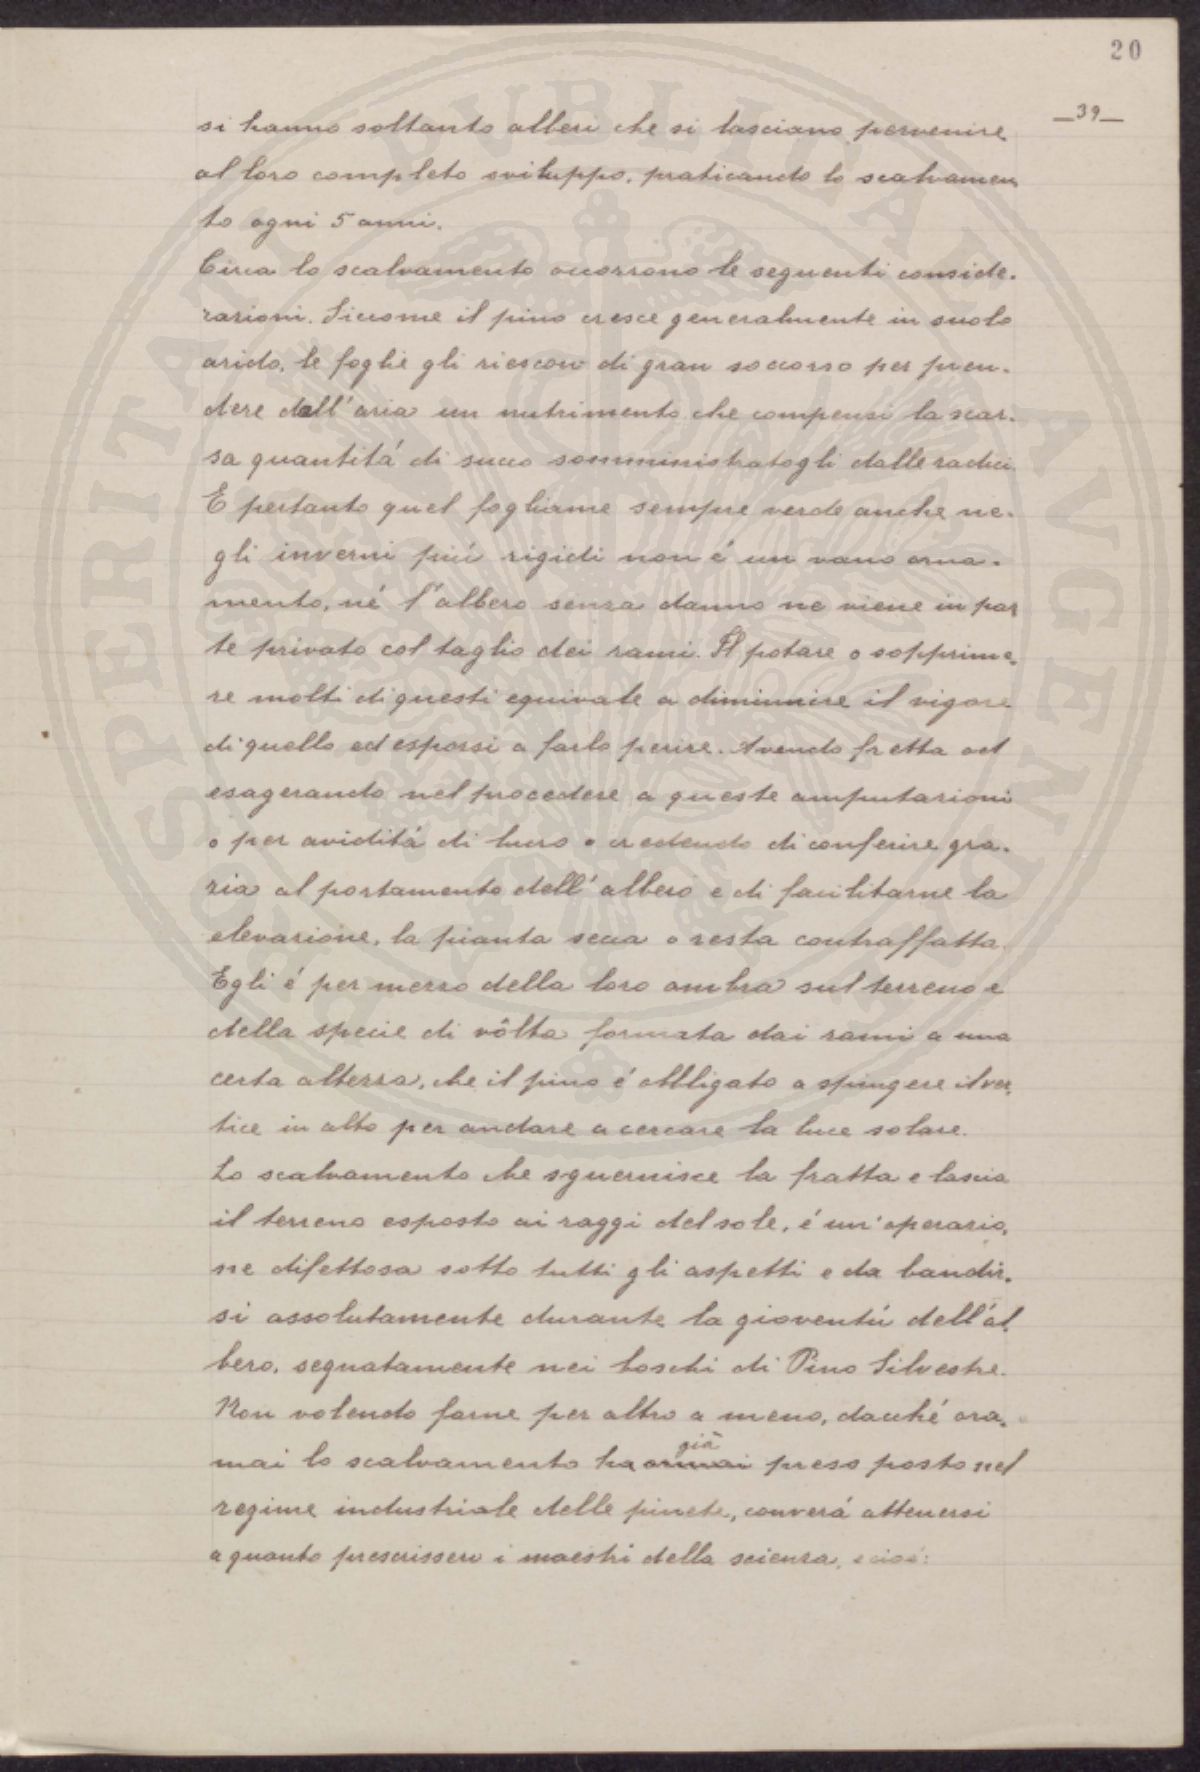 20
—39—
si hanno soltanto alberi che si lasciano pervenire
al loro completo sviluppo, praticando lo scalvamen
to ogni 5 anni.
Circa lo scalvamento occorrono le seguenti conside-
razioni. Siccome il pino cresce generalmente in suolo
arido, le foglie gli riescono di gran soccorso per pren-
dere dall'aria un nutrimento che compensi la scar-
sa quantitá di succo somministratogli dalle radici.
E pertanto quel fogliame sempre verde anche ne-
gli inverni piú rigidi non é un vano orna-
mento, né l'albero senza danno ne viene in par
te privato col taglio dei rami. Il potare o sopprime-
re molti di questi equivale a diminuire il vigore
di quello ed esporsi a farlo perire. Avendo fretta od
esagerando nel procedere a queste amputazioni
o per aviditá di lucro o credendo di conferire gra-
zia al portamento dell'albero e di facilitarne la
elevazione, la pianta secca o resta contraffatta.
Egli é per mezzo della loro ombra sul terreno e
della specie di vôlta formata dai rami a una
certa altezza, che il pino é obbligato a spingere il ver-
tice in alto per andare a cercare la luce solare.
Lo scalvamento che sguernisce la fratta e lascia
il terreno esposto ai raggi del sole, é un'operazio-
ne difettosa sotto tutti gli aspetti e da bandir-
si assolutamente durante la gioventú dell'al-
bero, segnatamente nei boschi di Pino Silvestre.
Non volendo farne per altro a meno, dacché ora-
già
mai lo scalvamento ha ormai preso posto nel
regime industriale delle pinete, converá attenersi
a quanto prescrissero i maestri della scienza, e cioé:
SPERITAT PVBLICAT AVGENDIS